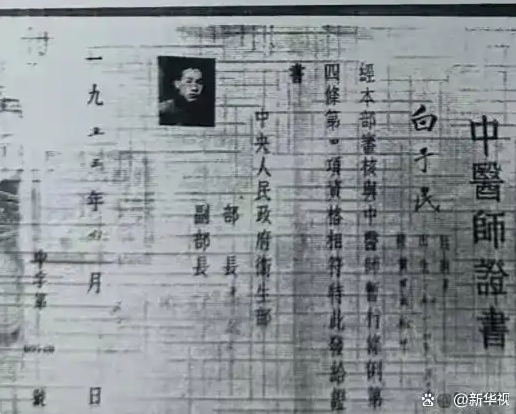 中醫師證書
白子民
經本部審核與中醫師暫行條例第
四條第四項資格相符特此發給證
書
中央人民政府衛生部
部長
副部長
一九五三年 月 日
中字第 號
@新华视